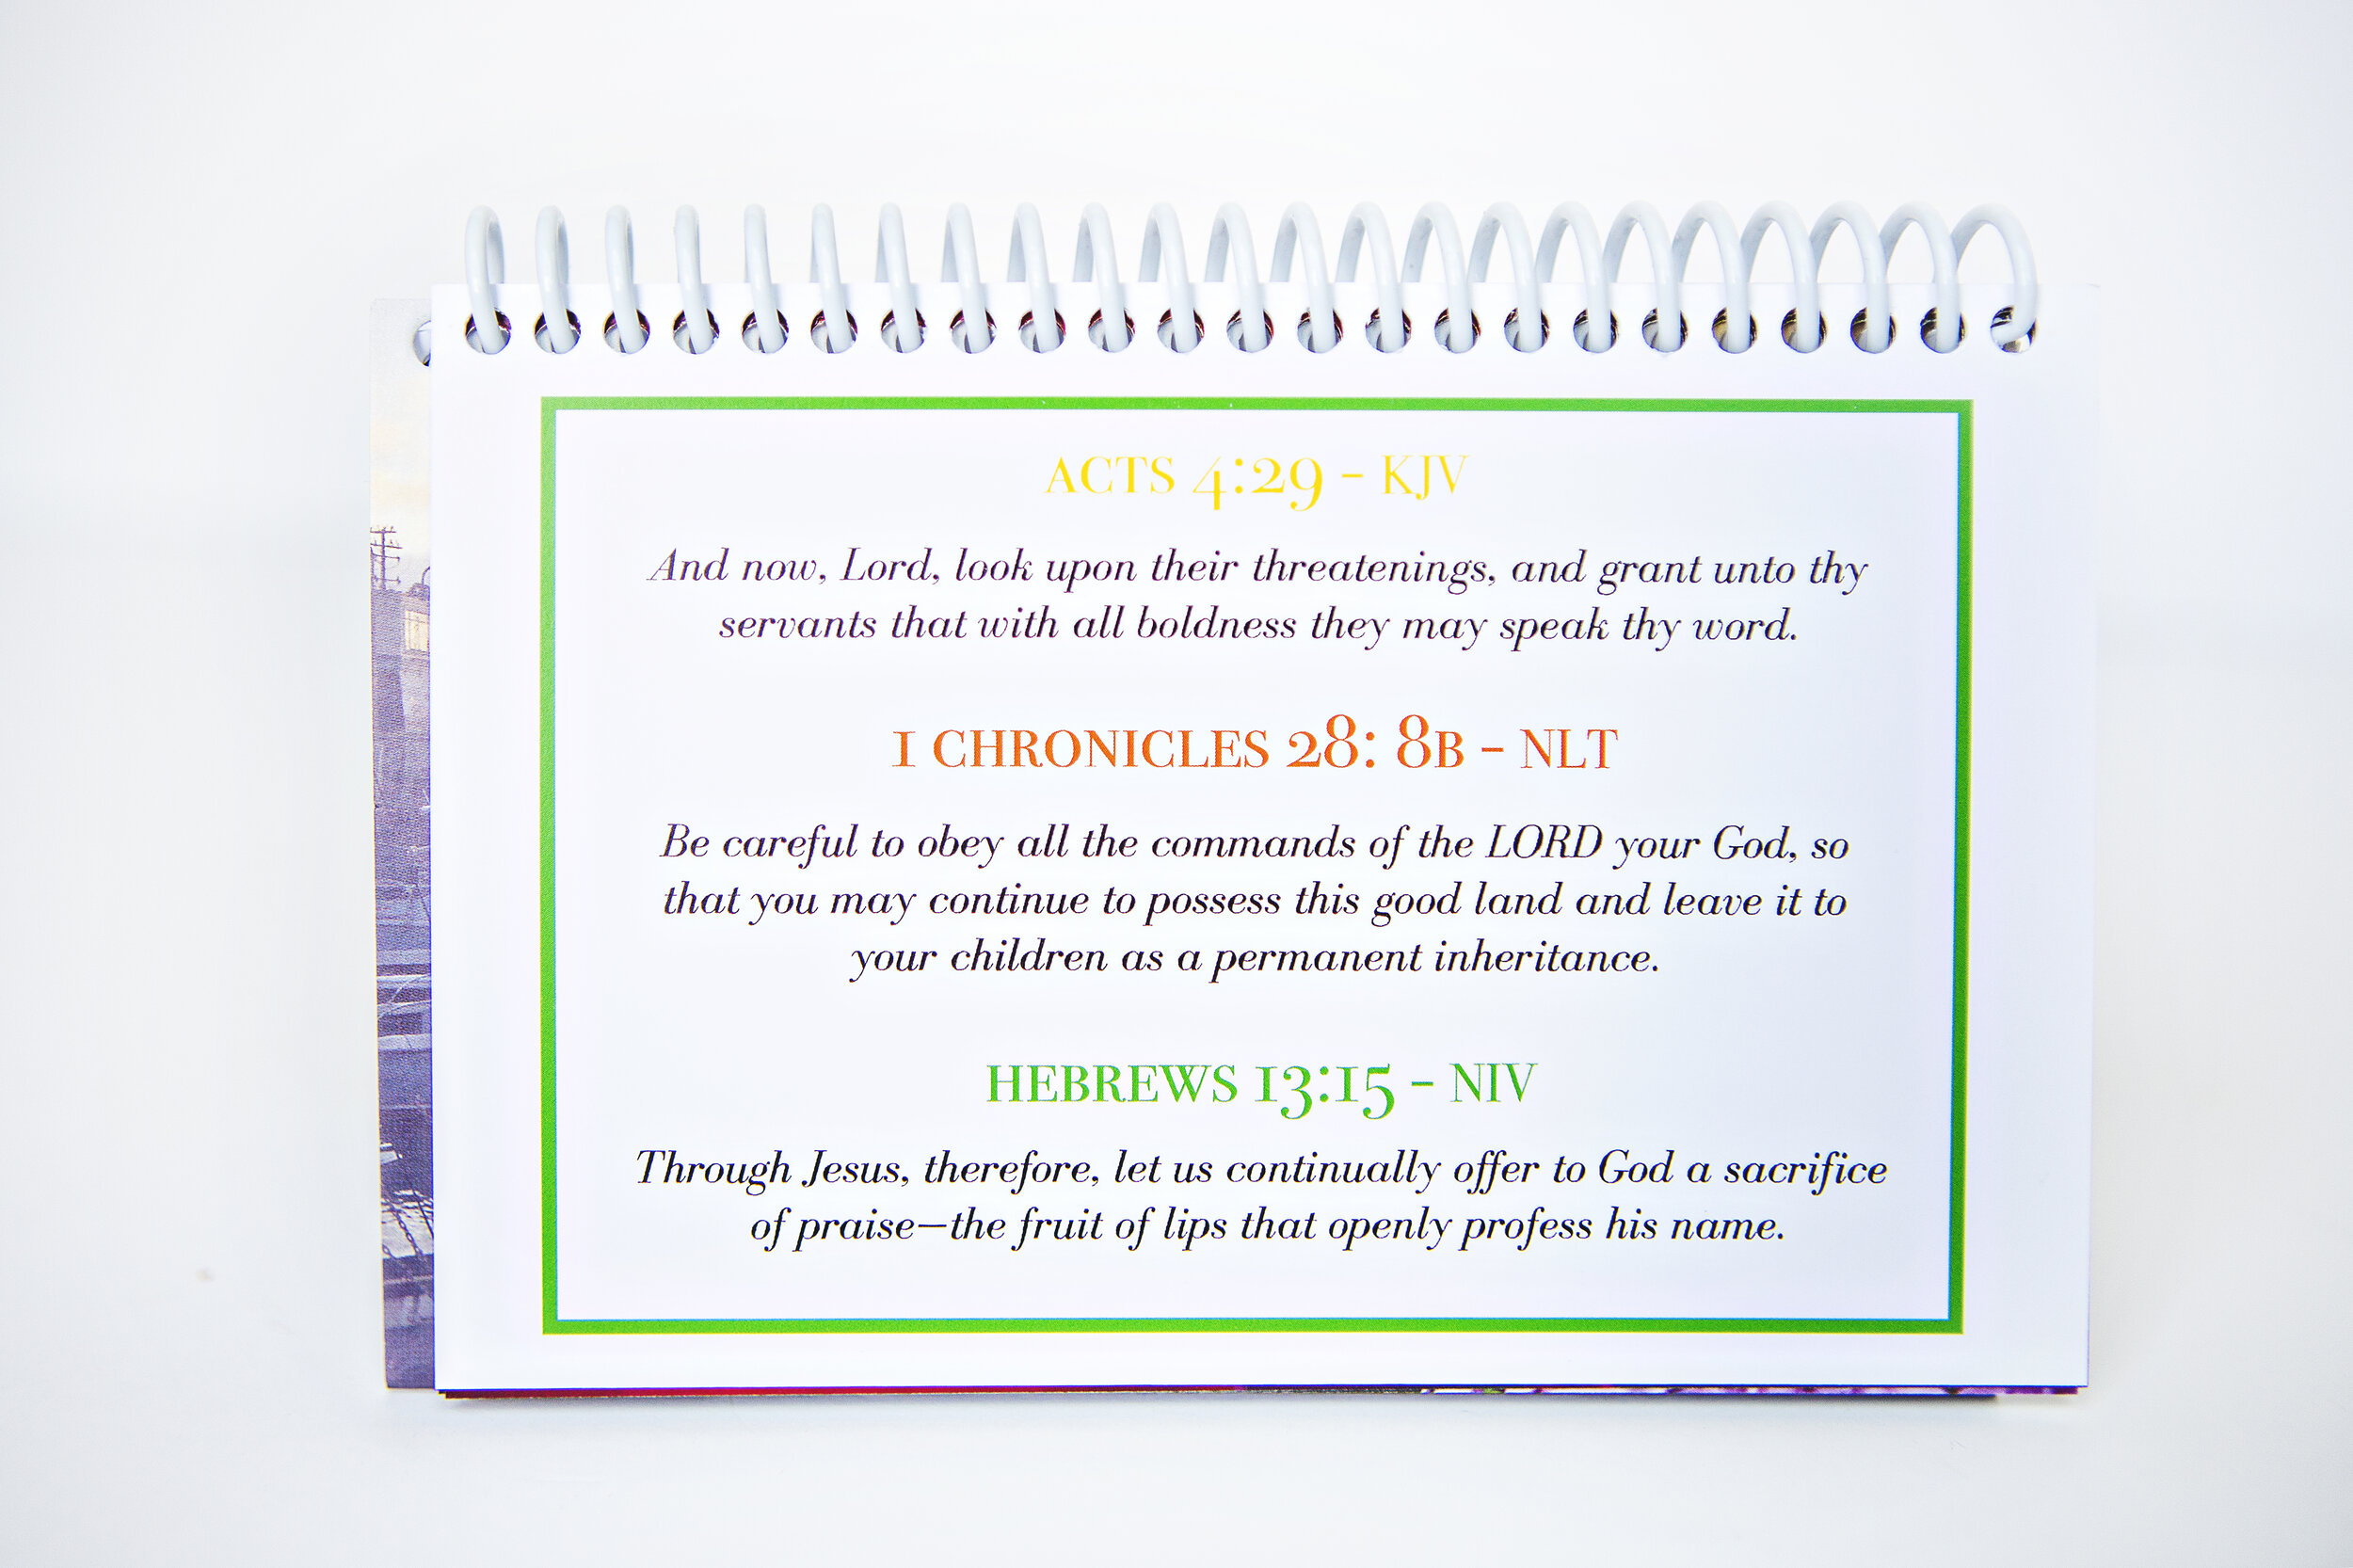 ACTS 4:29 - KJV
And now, Lord, look upon their threatenings, and grant unto thy
servants that with all boldness they may speak thy word.
1 CHRONICLES 28: 8B - NLT
Be careful to obey all the commands of the LORD your God, so
that you may continue to possess this good land and leave it to
your children as a permanent inheritance.
HEBREWS 13:15 - NIV
Through Jesus, therefore, let us continually offer to God a sacrifice
of praise—the fruit of lips that openly profess his name.